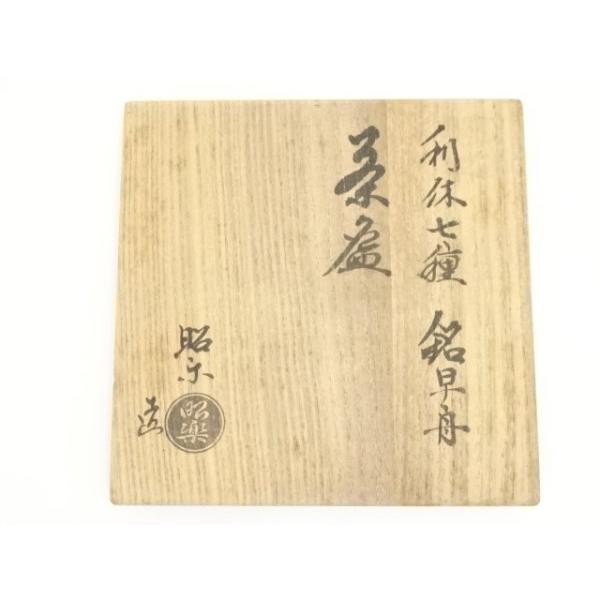 利休七種 銘早舟
茶盌
昭楽
造
昭楽